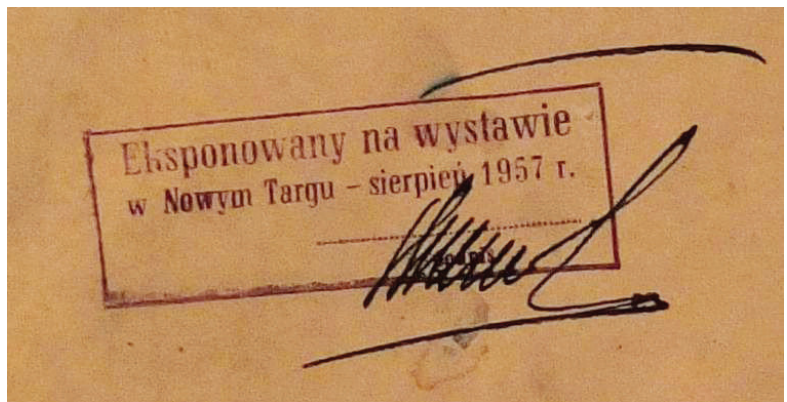 Eksponowany na wystawie
w Nowym Targu – sierpień 1957 r.